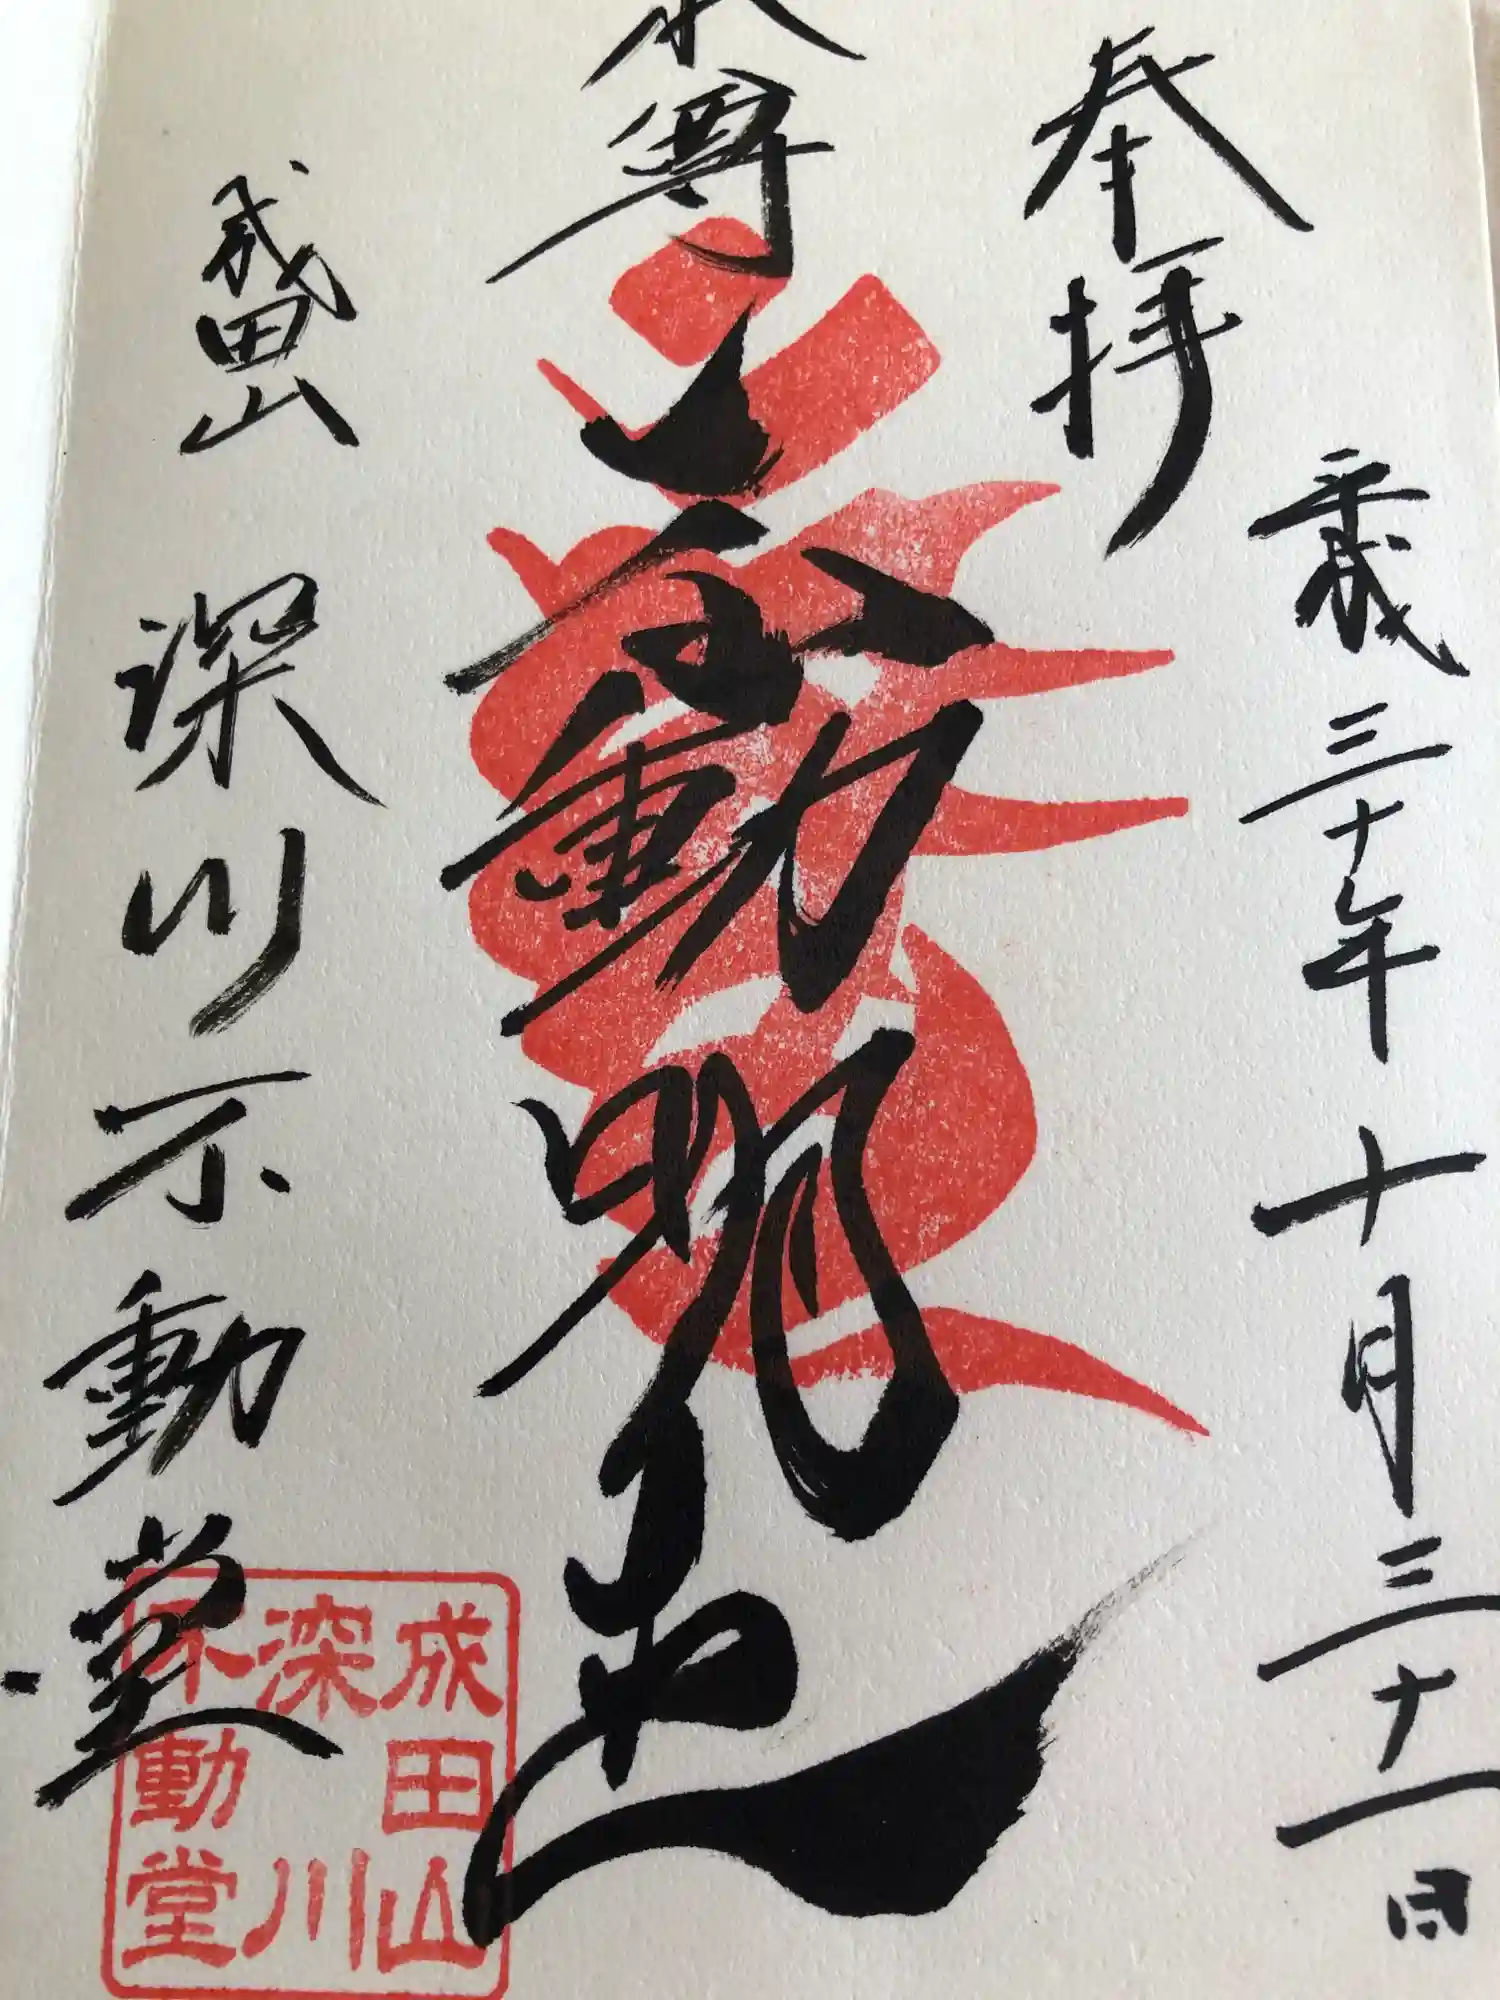 奉拝
平成三十年十月三十一日
本尊
不動明王
成田山 深川不動堂
成田山
深川
不動堂